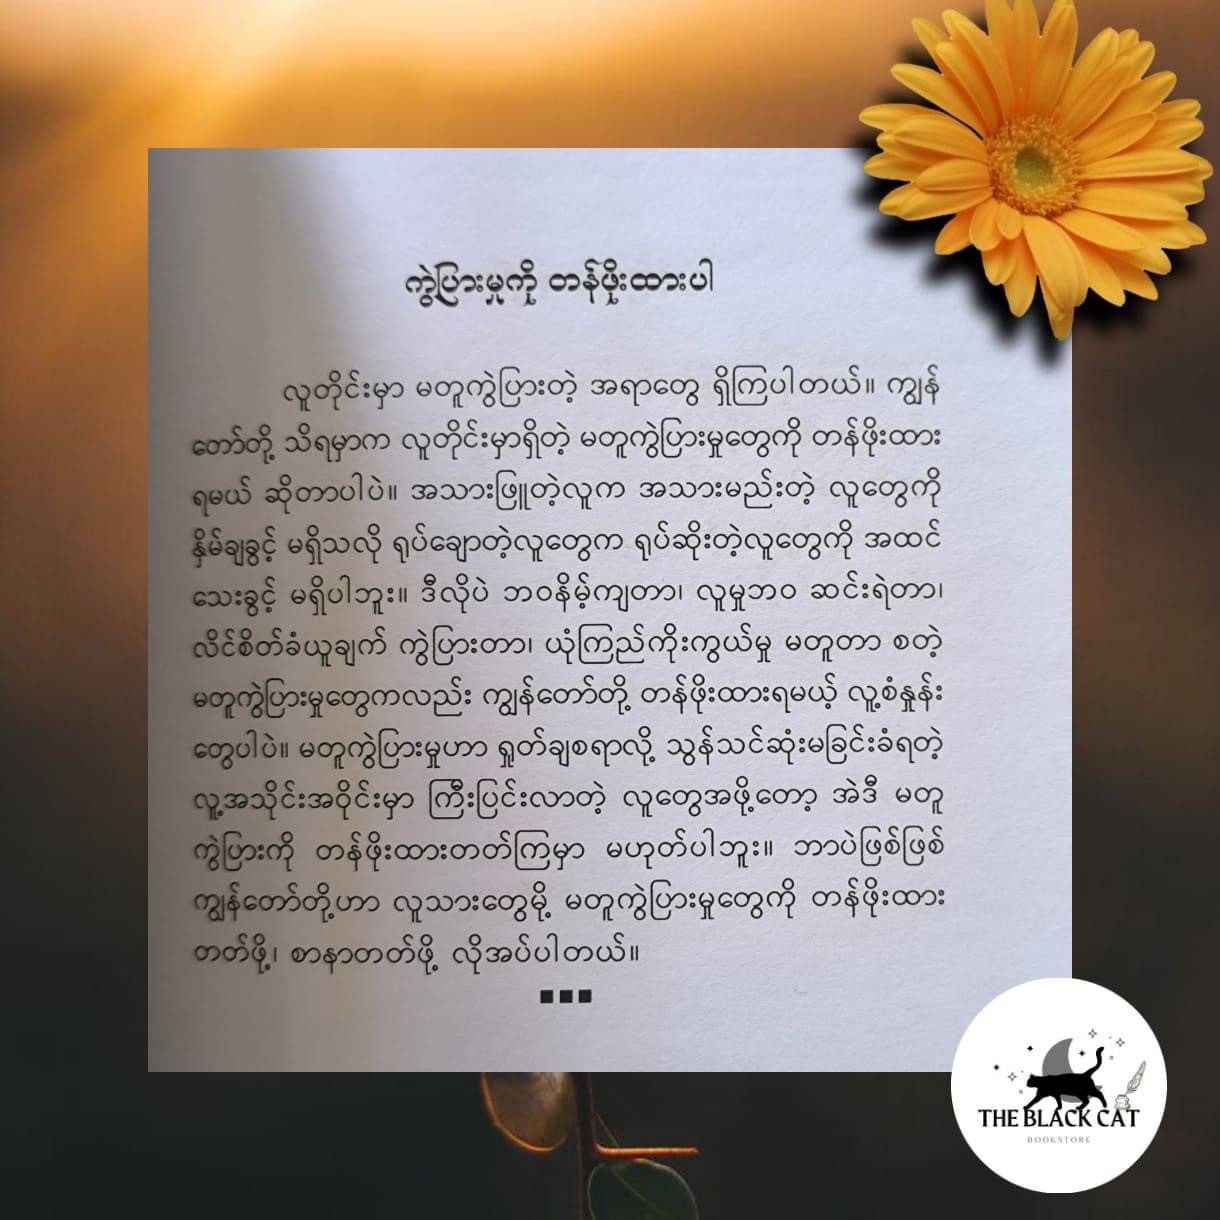 ကွဲပြားမှုကို တန်ဖိုးထားပါ
လူတိုင်းမှာ မတူကွဲပြားတဲ့ အရာတွေ ရှိကြပါတယ်။ ကျွန်
တော်တို့ သိရမှာက လူတိုင်းမှာရှိတဲ့ မတူကွဲပြားမှုတွေကို တန်ဖိုးထား
ရမယ် ဆိုတာပါပဲ။ အသားဖြူတဲ့လူက အသားမည်းတဲ့ လူတွေကို
နှိမ်ချခွင့် မရှိသလို ရုပ်ချောတဲ့လူတွေက ရုပ်ဆိုးတဲ့လူတွေကို အထင်
သေးခွင့် မရှိပါဘူး။ ဒီလိုပဲ ဘဝနိမ့်ကျတာ၊ လူမှုဘဝ ဆင်းရဲတာ၊
လိင်စိတ်ခံယူချက် ကွဲပြားတာ၊ ယုံကြည်ကိုးကွယ်မှု မတူတာ စတဲ့
မတူကွဲပြားမှုတွေကလည်း ကျွန်တော်တို့ တန်ဖိုးထားရမယ့် လူ့စံနှုန်း
တွေပါပဲ။ မတူကွဲပြားမှုဟာ ရှုတ်ချစရာလို့ သွန်သင်ဆုံးမခြင်းခံရတဲ့
လူ့အသိုင်းအဝိုင်းမှာ ကြီးပြင်းလာတဲ့ လူတွေအဖို့တော့ အဲဒီ မတူ
ကွဲပြားကို တန်ဖိုးထားတတ်ကြမှာ မဟုတ်ပါဘူး။ ဘာပဲဖြစ်ဖြစ်
ကျွန်တော်တို့ဟာ လူသားတွေမို့ မတူကွဲပြားမှုတွေကို တန်ဖိုးထား
တတ်ဖို့၊ စာနာတတ်ဖို့ လိုအပ်ပါတယ်။
THE BLACK CAT
BOOKSTORE